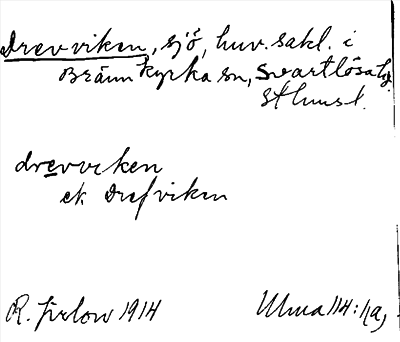 Drevviken, sjö, huv. sakl. i
Brännkyrka sn, Svartlösa hd.
Sthms l.
drevviken
ek Drefviken
R. Jirlow 1914
Ulma 114: